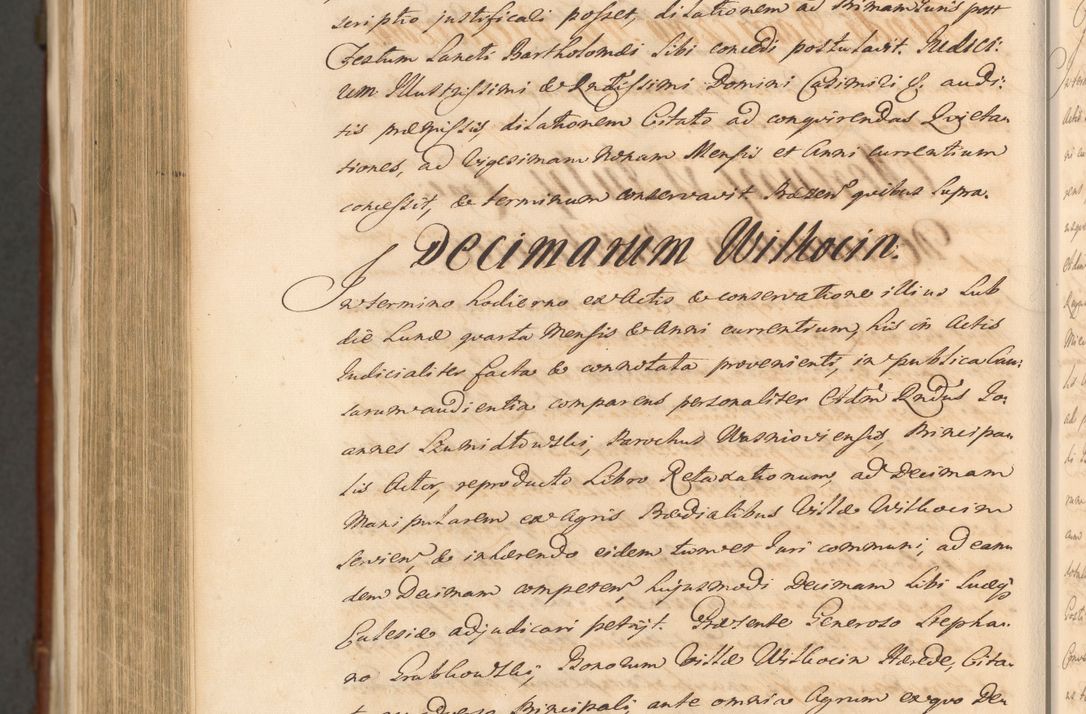 scriptio justificali posset, dilationem ad Primam Juris post
Festum Sancti Bartholomæi sibi concedi postulavit. Judici:
um Illustrissimi & Rndissimi Domini Casimiri &. audi:
tis præmissis dilationem Citato ad conquirendas Quieta-
tiones, ad Vigesimam Nonam Mensis et Anni currentium
concessit, & terminum conservavit Præsen. quibus supra.
Decimarum Wilkocin:
In termino hodierno ex Actis & conservatione illius sub
die Lunæ quarta Mensis & Anni currentium, his in Actis
Judicialiter facta & connotata provenienti, in publica Cau:
sarum audientia comparens personaliter Adm. Rndus Jo-
annes Szumidtowski, Parochus Wasnioviensis, Principa-
lis Actor, reproducto Libro Retaxationum, ad Decimam
Manipularem ex Agris Prædialibus Villæ Wilkocin
servien. & inhærendo eidem tum et Juri communi, ad ean-
dem Decimam competen. hujusmodi Decimam sibi suæq.
Eclesiæ adjudicari petijt. Præsente Generoso Stepha-
no Grabkowski, Bonorum Villæ Wilkocin Hærede, Cita-
to ex adverso Principali, ante omnia Agrum ex quo De-